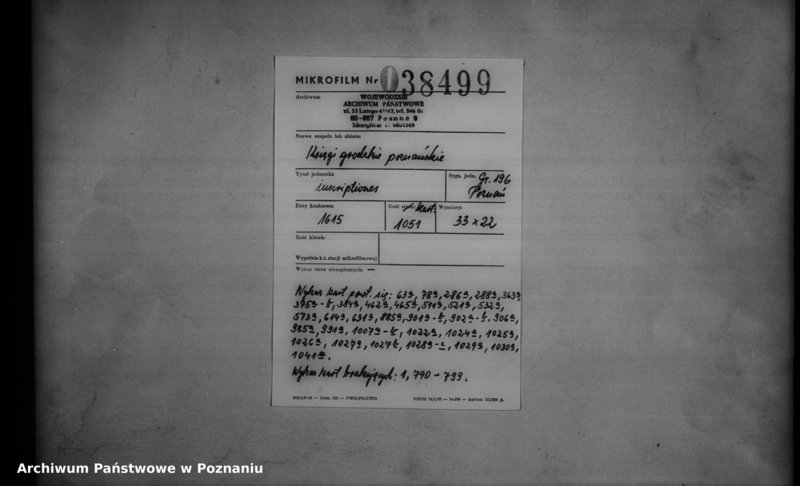 MIKROFILM Nr 038499
Archiwum
WOJEWÓDZKIE
ARCHIWUM PAŃSTWOWE
ul. 23 Lutego 41/43, tel.
60-967 Poznań 9
Nazwa zespołu lub zbioru:
Księgi grodzkie poznańskie
Tytuł jednostki:
inscriptiones
Sygn. jedn. Gr. 196
Poznań
Daty krańcowe:
1615
Ilość stron: kart.
1051
Wymiary:
33 x 22
Ilość klatek:
Wypełnia k.t. stacji mikrofilmowej
Wykaz stron niezapisanych: —
Wykaz kart powt. się: 63a, 78a, 286a, 288a, 363a
375a-b, 384a, 462a, 465a, 519a, 521a, 532a,
573a, 614a, 631a, 885a, 901a-b, 902a-b, 906a,
985a, 991a, 1007a-b, 1022a, 1024a, 1025a,
1026a, 1027a, 1027b, 1028a-c, 1029a, 1030a,
1041a.
Wykaz kart brakujących: 1, 790 - 799.
Archiwum Państwowe w Poznaniu